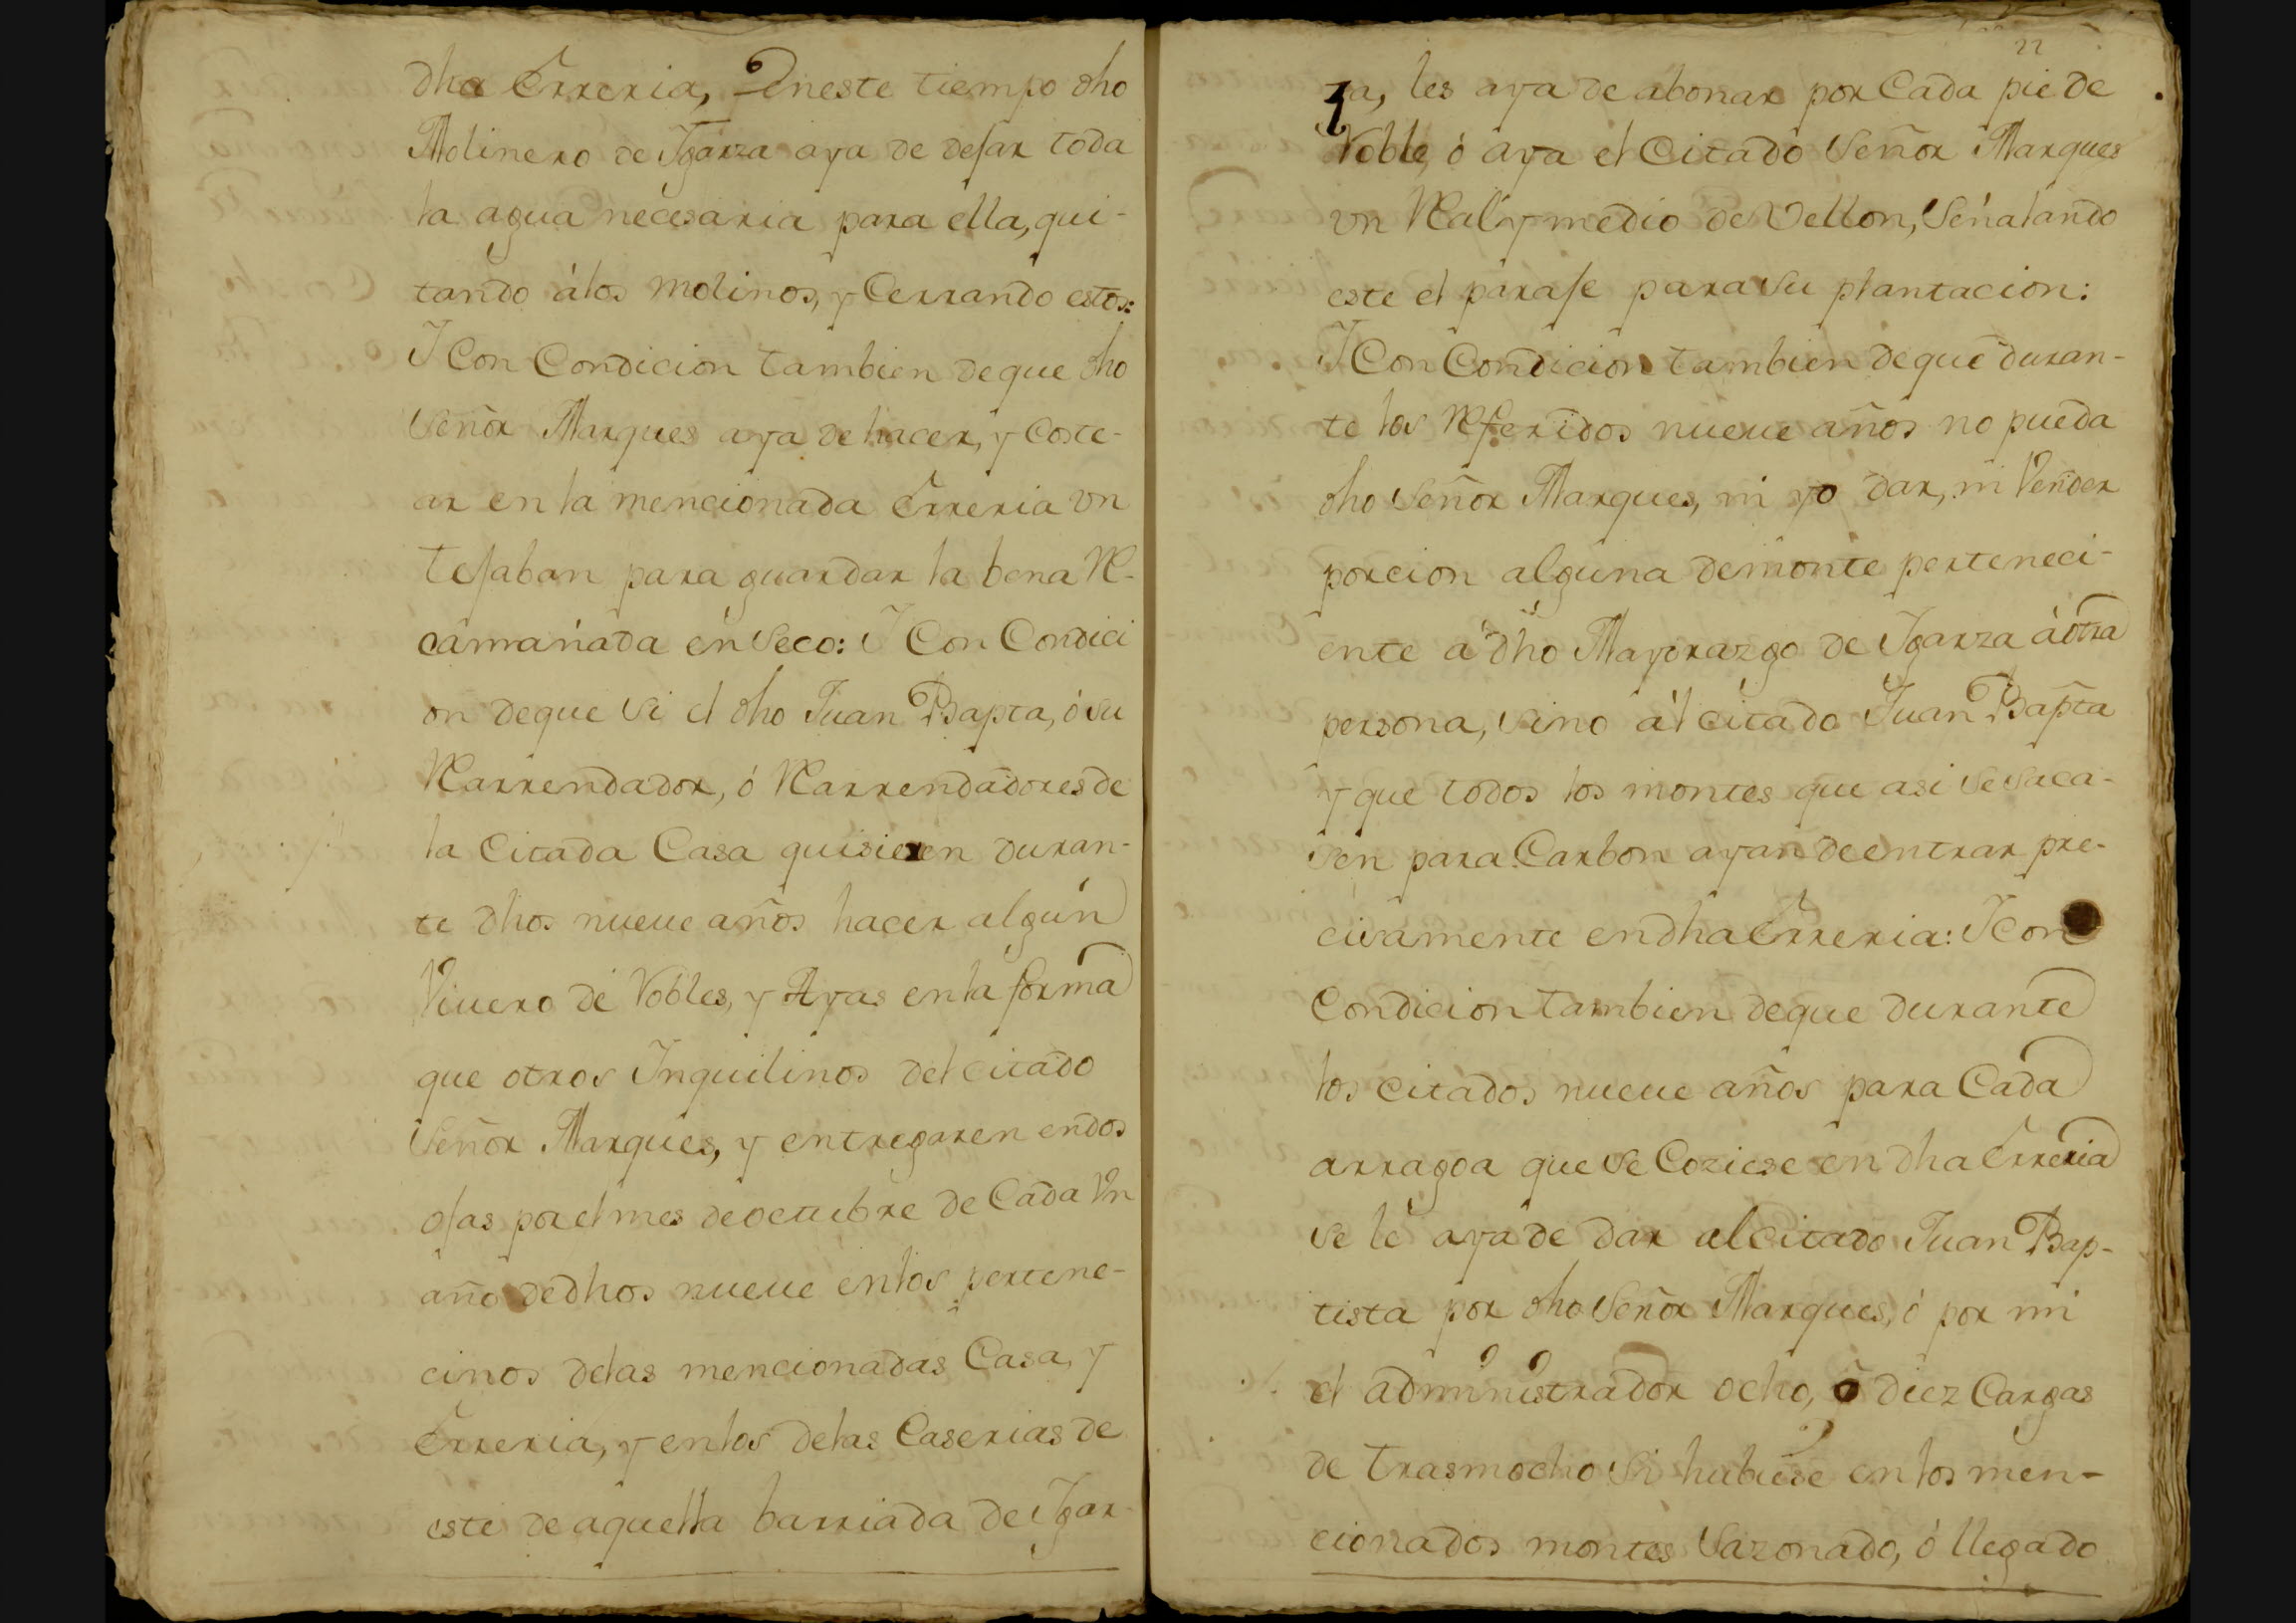 dha Erreria, Eneste tiempo dho
Molinero de Ygarza aya de dejar toda
la agua necesaria para ella, qui-
tando álos molinos, y Cerrando estos:
Y Con Condicion tambien deque dho
Señor Marques aya de hacer, y Coste-
ar en la mencionada Erreria vn
tejaban para guardar la bena R-
camañada en Seco: Y Con Condici
on deque si el dho Juan Bapta, ó su
Rarrendador, ó Rarrendadores de
la Citada Casa quisieren duran-
te dhos nueue años hacer algún
Viuero de Robles, y Ayas enla forma
que otros Ynquilinos del citado
Señor Marques, y entregaren endos
ojas por el mes de octubre de Cada Vn
año dedhos nueue enlos pertene-
cinos delas mencionadas Casa, y
Erreria, y enlos delas Caserias de
este de aquella barriada de Ygar-
22
za, les aya de abonar por Cada pie de
Roble, ó aya el Citado Señor Marques
vn Ral y medio de Vellon, Señalando
este el paraje para su plantacion:
Y Con Condicion tambien deque duran-
te los Rferidos nueue años no pueda
dho Señor Marques, ni yo dar, ni Vender
porcion alguna demonte perteneci-
ente á dho Mayorazgo de Ygarza áotra
persona, sino ál citado Juan Bapta
y que todos los montes que asi se saca-
sen para Carbon ayan de entrar pre-
cisamente endha Erreria: Y Con
Condicion tambien deque durante
los citados nueue años para Cada
arragoa que se Coziese en dha Erreria
se le aya de dar al citado Juan Bap-
tista por dho Señor Marques, ó por mi
el administrador ocho, ó diez Cargas
de trasmocho si hubiese en los men-
cionados montes Sazonado, ó llegado